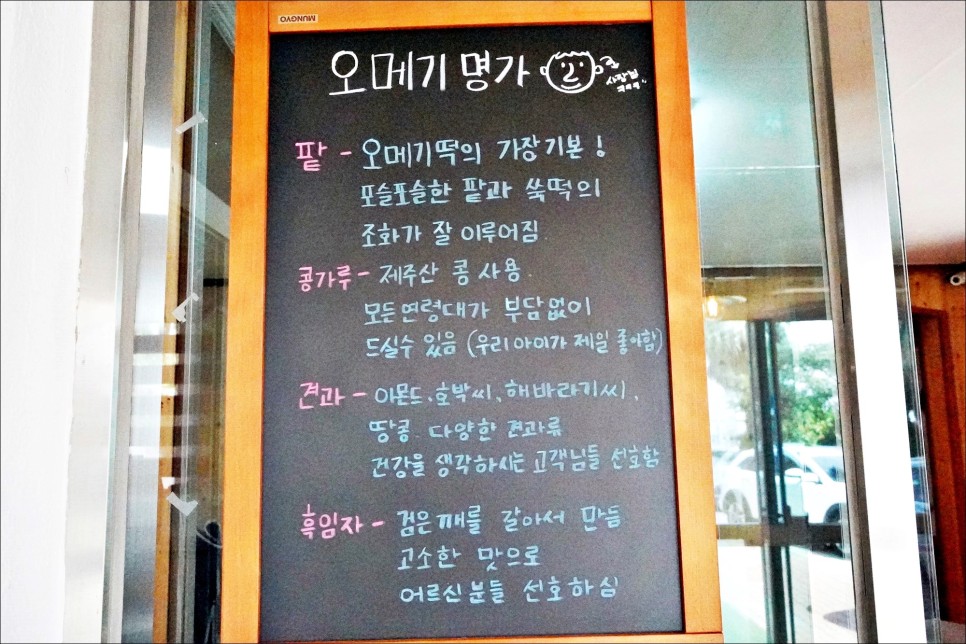 MUNGYO
오메기명가
사장님
팥 - 오메기떡의 가장기본!
포슬포슬한 팥과 쑥떡의
조화가 잘 이루어짐.
콩가루 - 제주산 콩 사용.
모든연령대가 부담없이
드실수 있음 (우리아이가 제일 좋아함)
견과 - 아몬드, 호박씨, 해바라기씨,
땅콩. 다양한 견과류
건강을 생각하시는 고객님들 선호함
흑임자 - 검은깨를 갈아서 만듬
고소한 맛으로
어르신분들 선호하심